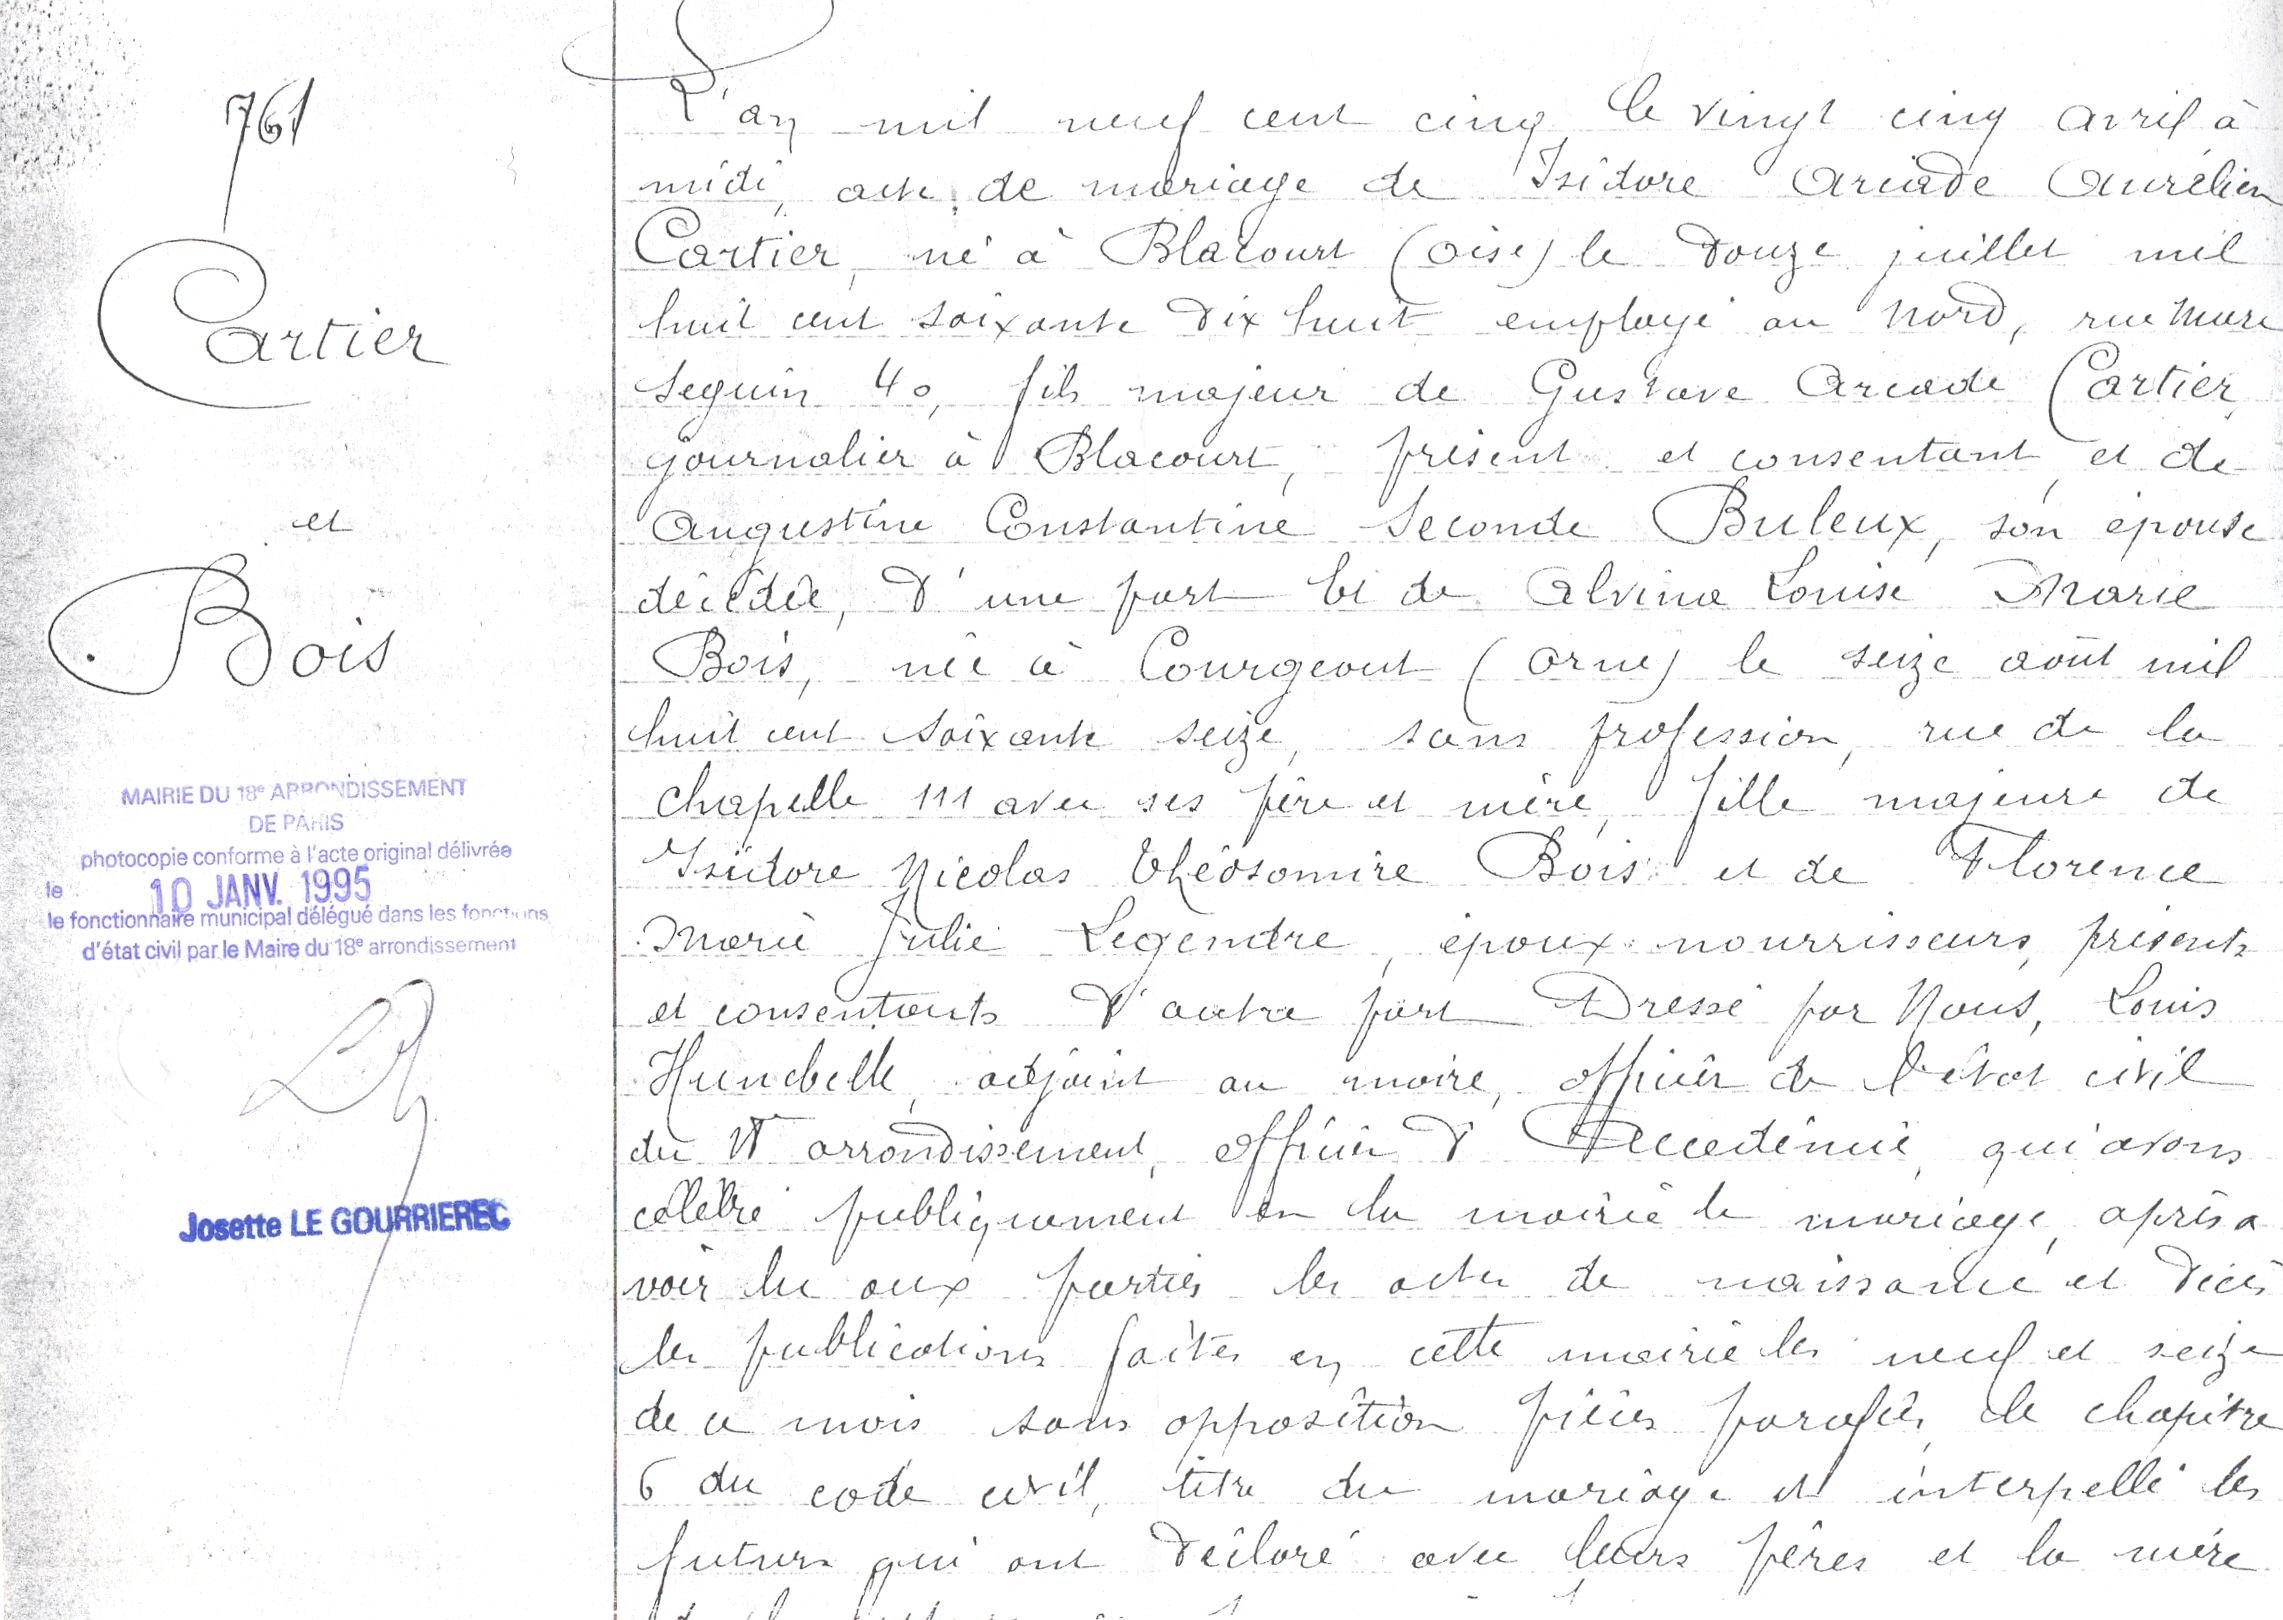 761
Cartier
et
Bois
MAIRIE DU 18e ARRONDISSEMENT
DE PARIS
photocopie conforme à l'acte original délivrée
le 10 JANV. 1995
le fonctionnaire municipal délégué dans les fonctions
d'état civil par le Maire du 18e arrondissement
Josette LE GOURRIEREC
L'an mil neuf cent cinq, le vingt cinq avril à
midi, acte de mariage de Isidore Arcade Aurélien
Cartier, né à Blacourt (Oise) le douze juillet mil
huit cent soixante dix huit employé au Nord, rue Marc
Seguin 40, fils majeur de Gustave Arcade Cartier,
journalier à Blacourt, présent et consentant, et de
Augustine Constantine Seconde Buleux, son épouse
décédée, d'une part Et de Alvina Louise Marie
Bois, née à Courgeout (Orne) le seize août mil
huit cent soixante seize, sans profession, rue de la
chapelle 111 avec ses père et mère, fille majeure de
Isidore Nicolas Théosomire Bois et de Florence
Marie Julie Legendre, époux nourrisseurs, présents
et consentants d'autre part Dressé par Nous, Louis
Hunebelle, adjoint au maire, officier de l'état civil
du arrondissement, officier d'Académie, qui avons
célébré publiquement en la mairie le mariage, après a
voir lu aux parties les actes de naissance et décès
les publications faites en cette mairie les neuf et seize
de ce mois sans opposition pièces paraphées, le chapitre
6 du code civil, titre du mariage et interpellé les
futurs qui ont déclaré avec leurs pères et la mère